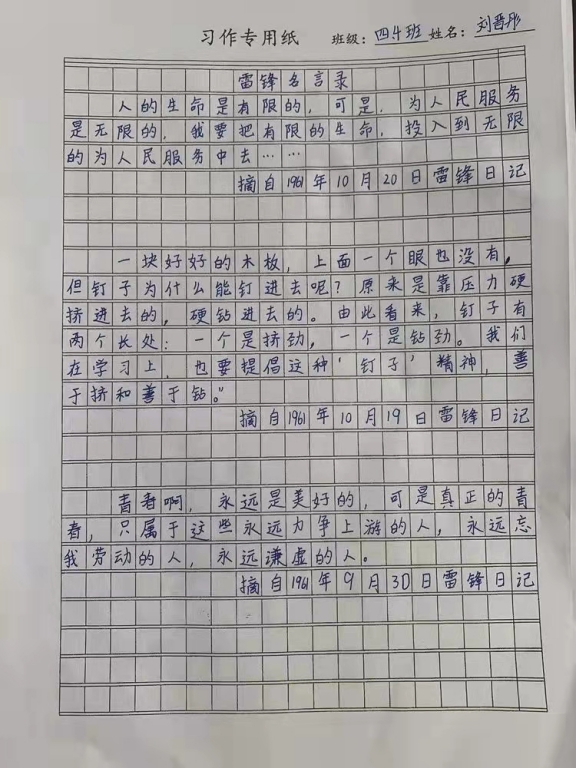 习作专用纸 班级：四4班 姓名：刘晋彤
雷锋名言录
人的生命是有限的，可是，为人民服务
是无限的，我要把有限的生命，投入到无限
的为人民服务中去……
摘自1961年10月20日雷锋日记
一块好好的木板，上面一个眼也没有，
但钉子为什么能钉进去呢？原来是靠压力硬
挤进去的，硬钻进去的。由此看来，钉子有
两个长处：一个是挤劲，一个是钻劲。我们
在学习上，也要提倡这种'钉子'精神，善
于挤和善于钻。"
摘自1961年10月19日雷锋日记
青春啊，永远是美好的，可是真正的青
春，只属于这些永远力争上游的人，永远忘
我劳动的人，永远谦虚的人。
摘自1961年9月30日雷锋日记